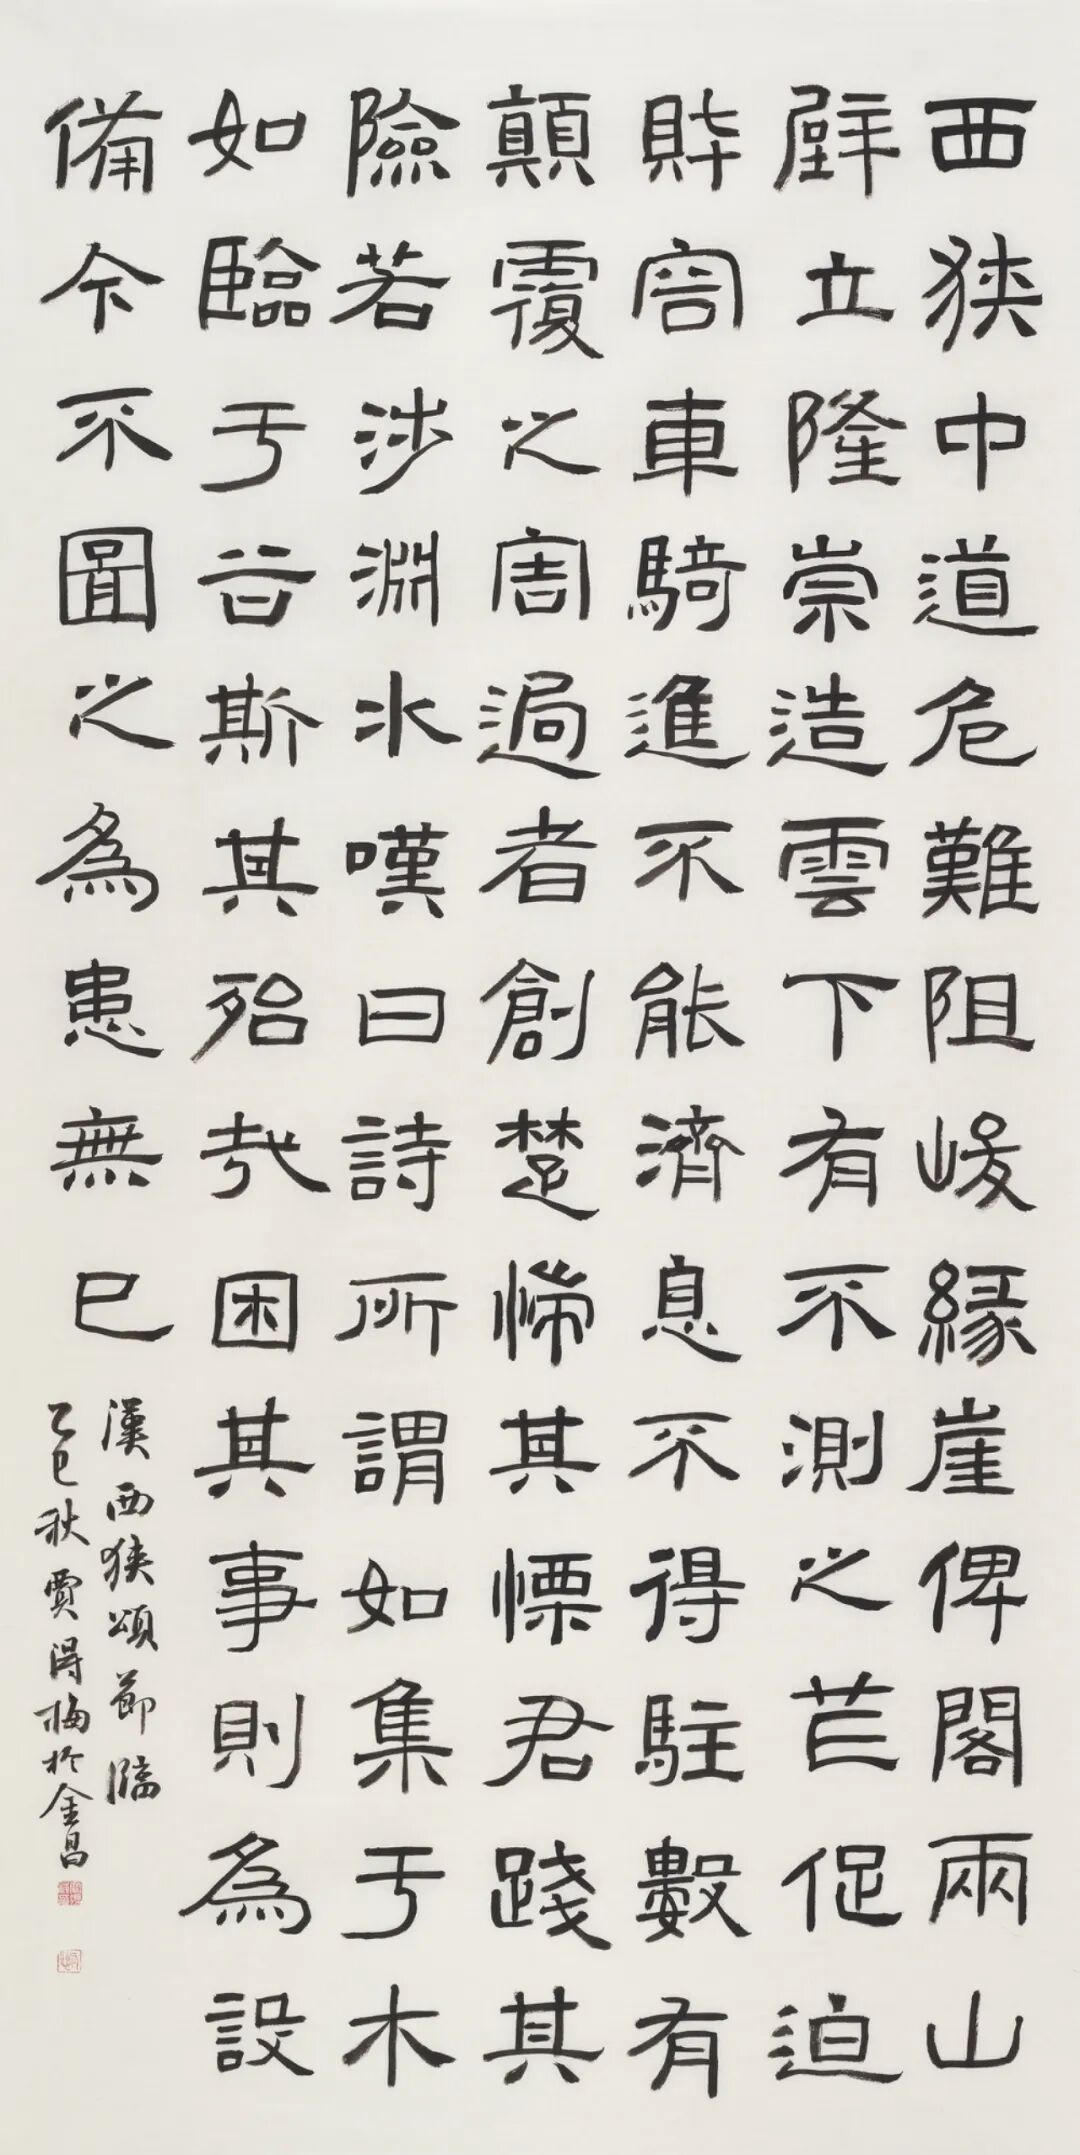 西狹中道危難阻峻緣崖俾閣兩山
壁立隆崇造雲下有不測之芒促迫
財容車騎進不能濟息不得駐數有
顛覆之害過者創楚惴其慄君踐其
險若涉淵冰嘆曰詩所謂如集于木
如臨于谷斯其殆哉困其事則為設
備今不圖之為患無已
漢西狹頌節臨
乙巳秋賈得梅於金昌